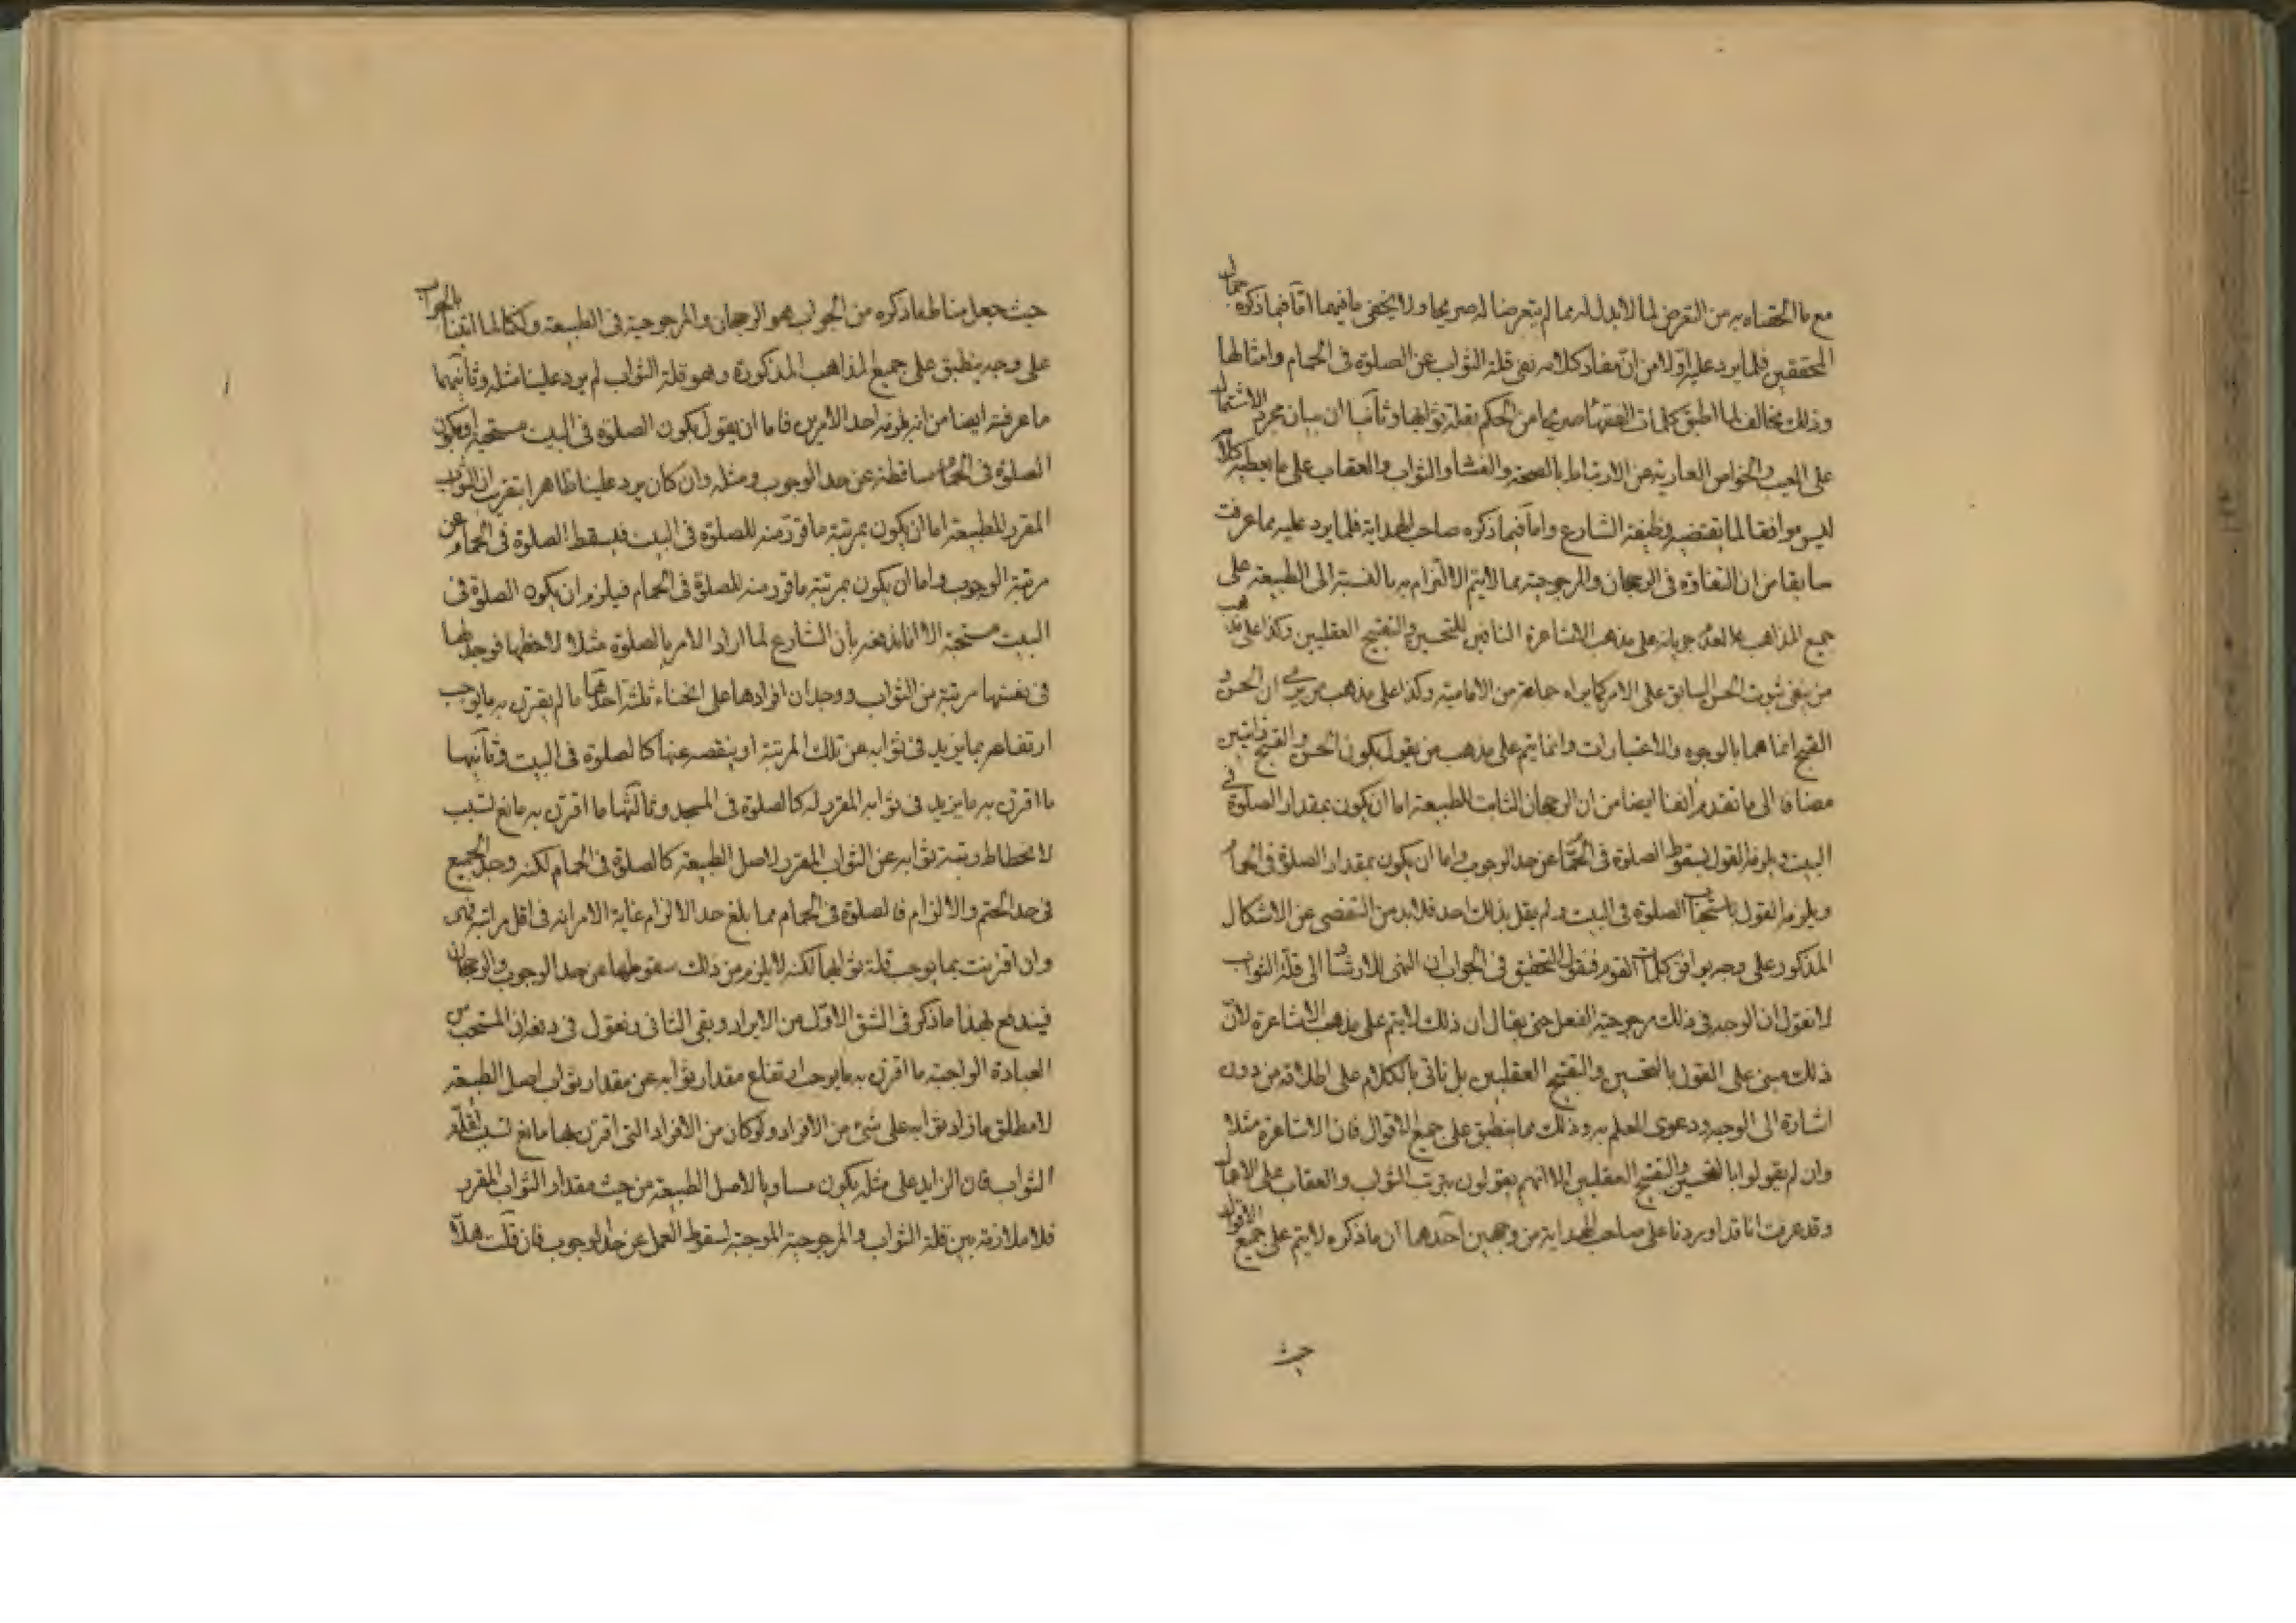 مع ما الحقناه به من التعرض لما لا بد له مما لم يتعرضا له صريحا ولا يخفى ما فيهما اما فيما ذكره جمال
المحققين فلما يرد عليه اولا من ان مفاد كلامه نفى قلة الثواب عن الصلوة فى الحمام وامثالها
وذلك مخالف لما اطبق كلمات الفقهاء صريحا من الحكم بقلة ثوابها وثانيا ان بيان مجرد الاشتمال
على العيب والخواص العارية عن الارتباط بالصحة والفساد والثواب والعقاب على ما يعطيه كلامه
ليس موافقا لما يقتضيه وظيفة الشارع واما فيما ذكره صاحب الهداية فلما يرد عليه بما عرفت
سابقا من ان التفاوت فى الرجحان والمرجوحية مما لا يتم الالتزام به بالنسبة الى الطبيعة على
جميع المذاهب لعدم جريانه على مذهب الاشاعرة النافين للتحسين والتقبيح العقليين وكذا على مذهب
من ينفى ثبوت الحسن السابق على الامر كما يراه جماعة من الامامية وكذا على مذهب من يرى ان الحسن و
القبح انما هما بالوجوه والاعتبارات وانما يتم على مذهب من يقول بكون الحسن والقبح ذاتيين
مضافا الى ما تقدم آنفا ايضا من ان الرجحان الثابت للطبيعة اما ان يكون بمقدار الصلوة فى
البيت ويلزمه القول بسقوط الصلوة فى الحمام عن حد الوجوب واما ان يكون بمقدار الصلوة فى الحمام
ويلزمه القول باستحباب الصلوة فى البيت ولم يقل بذلك احد فلا بد من التفصى عن الاشكال
المذكور على وجه يوافق كلمات القوم فنقول التحقيق فى الجواب ان النهى للارشاد الى قلة الثواب
لا نقول ان الوجه فى ذلك مرجوحية الفعل حتى يقال ان ذلك لا يتم على مذهب الاشاعرة لان
ذلك مبنى على القول بالتحسين والتقبيح العقليين بل ناتى بالكلام على اطلاقه من دون
اشارة الى الوجه ودعوى العلم به وذلك مما ينطبق على جميع الاقوال فان الاشاعرة مثلا
وان لم يقولوا بالتحسين والتقبيح العقليين الا انهم يقولون بترتب الثواب والعقاب على الاعمال
وقد عرفت انا قد اوردنا على صاحب الهداية من وجهين احدهما ان ما ذكره لا يتم على جميع الاقوال
حيث
حيث جعل مناط ما ذكره من الجواب هو الرجحان والمرجوحية فى الطبيعة ولكنا لما اتينا بالجواب
على وجه ينطبق على جميع المذاهب المذكورة وهو قلة الثواب لم يرد علينا مثله وثانيهما
ما عرفته ايضا من انه يلزمه احد الامرين فاما ان يقول بكون الصلوة فى البيت مستحبة او بكون
الصلوة فى الحمام ساقطة عن حد الوجوب ومثله وان كان يرد علينا ظاهرا بتقريب ان الثواب
المقرر للطبيعة اما ان يكون بمرتبة ما قرر منه للصلوة فى البيت فيسقط الصلوة فى الحمام عن
مرتبة الوجوب واما ان يكون بمرتبة ما قرر منه للصلوة فى الحمام فيلزم ان يكون الصلوة فى
البيت مستحبة الا انا ندفعه بان الشارع لما اراد الامر بالصلوة مثلا لاحظها فوجد لها
فى نفسها مرتبة من الثواب ووجد ان افرادها على انحاء ثلثة احدها ما لم يقترن به ما يوجب
ارتفاعه بما يزيد فى ثوابه عن تلك المرتبة او ينقصه عنها كالصلوة فى البيت وثانيها
ما اقترن به ما يزيد فى ثوابه المقرر له كالصلوة فى المسجد وثالثها ما اقترن به مانع لسبب
لانحطاط رتبة ثوابه عن الثواب المقرر لاصل الطبيعة كالصلوة فى الحمام لكنه وجد الجميع
فى حد الحتم والالزام فالصلوة فى الحمام مما بلغ حد الالزام غاية الامر انه فى اقل مراتبه فهى
وان اقترنت بما يوجب قلة ثوابها لكنه لا يلزم من ذلك سقوطها عن حد الوجوب والرجحان
فيندفع بهذا ما ذكر فى الشق الاول من الايراد وبقى الثانى ونقول فى دفعه ان المستحب من
العبادة الواجبة ما اقترن به ما يوجب ارتفاع مقدار ثوابه عن مقدار ثواب اصل الطبيعة
لا مطلق ما زاد ثوابه على شىء من الافراد ولو كان من الافراد التى اقترن بها مانع لسبب لقلة
الثواب فان الزايد على مثله يكون مساويا لاصل الطبيعة من حيث مقدار الثواب المقرر
فلا ملازمة بين قلة الثواب والمرجوحية الموجبة لسقوط العمل عن حد الوجوب فان قلت هلا